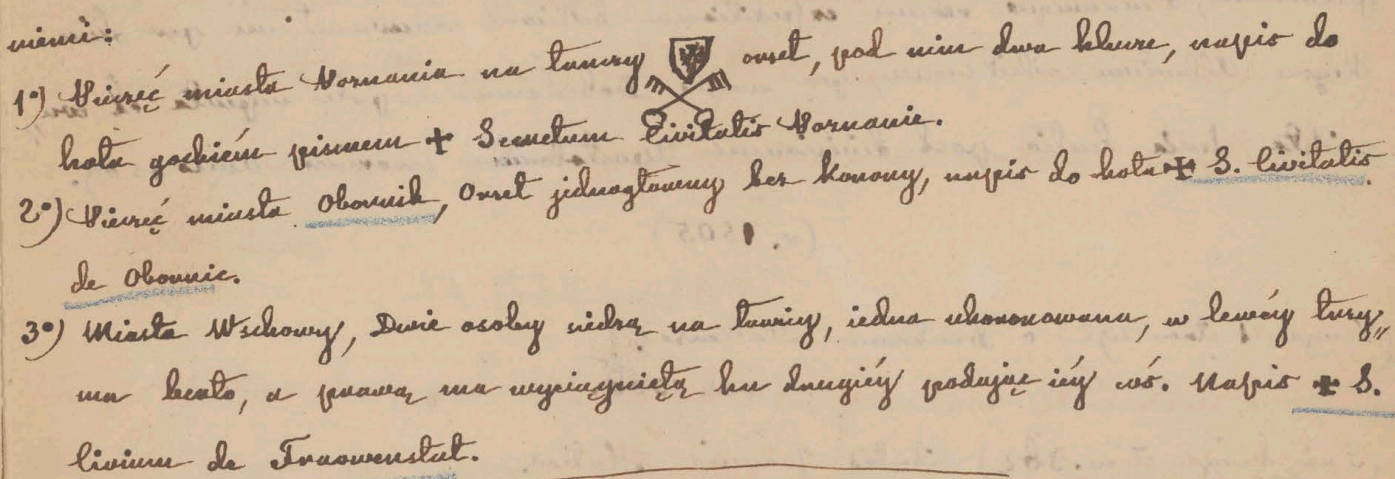 niemi:
1º) Pieczęć miasta Poznania na tarczy orzeł, pod nim dwa klucze, napis do
koła gockiém pismem + Secretum Civitatis Poznanie.
2º) Pieczęć miasta Obornik, Orzeł jednogłowny bez korony, napis do koła + S. Civitatis
de Obornic.
3º) Miasta Wschowy, Dwie osoby siedzą na ławicy, iedna ukoronowana, w lewéy trzy„
ma berło, a prawą ma wyciągniętą ku drugiéy podając iéy coś. Napis + S.
Civium de Fraowenstat.